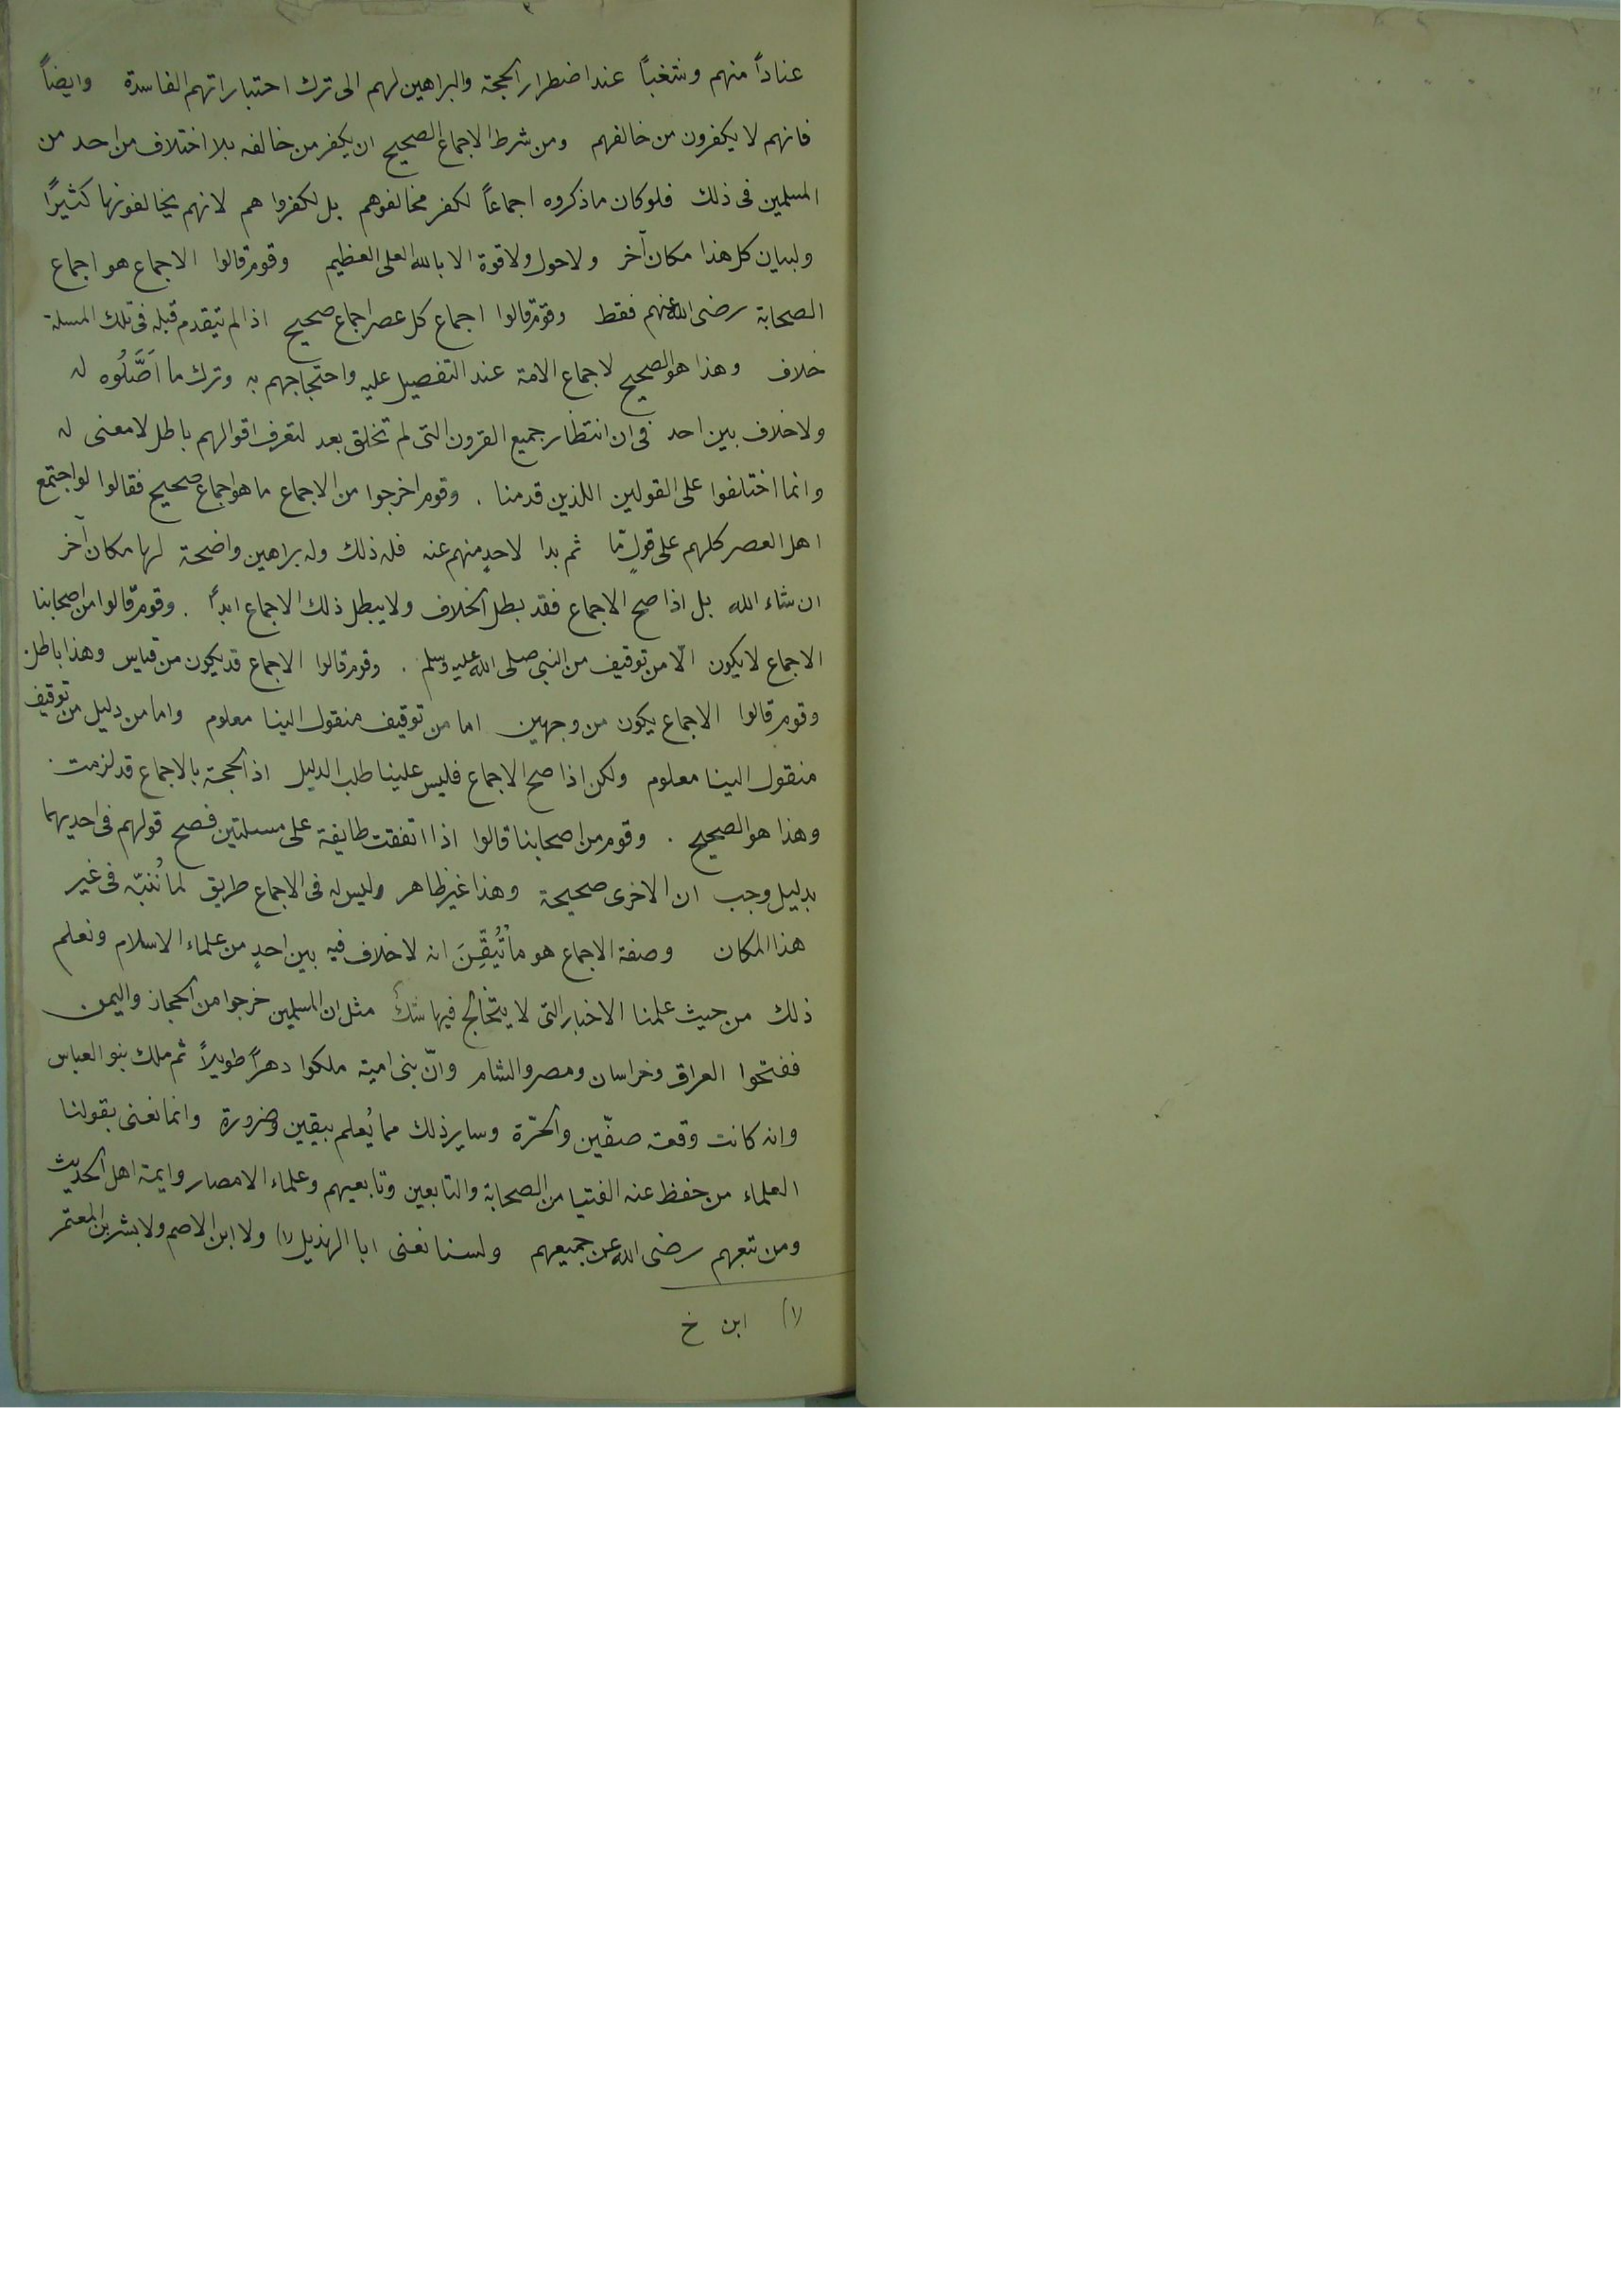 عناداً منهم وشغباً عند اضطرار الحجة والبراهين لهم الى ترك اختياراتهم الفاسدة وايضاً
فانهم لا يكفرون من خالفهم ومن شرط الاجماع الصحيح ان يكفر من خالفه بلا اختلاف من احد من
المسلمين فى ذلك فلو كان ما ذكروه اجماعاً لكفر مخالفوهم بل لكفروا هم لانهم يخالفونها كثيرًا
ولبيان كل هذا مكان آخر ولا حول ولا قوة الا بالله العلى العظيم وقوم قالوا الاجماع هو اجماع
الصحابة رضى الله عنهم فقط وقوم قالوا اجماع كل عصر اجماع صحيح اذا لم يتقدم قبله فى تلك المسلة
خلاف وهذا هو الصحيح لاجماع الامة عند التفصيل عليه واحتجاجهم به وترك ما اَصَّلُوه له
ولا خلاف بين احد فى ان انتظار جميع القرون التى لم تخلق بعد لتعرف اقوالهم باطل لا معنى له
وانما اختلفوا على القولين اللذين قدمنا . وقوم اخرجوا من الاجماع ما هو اجماع صحيح فقالوا لو اجتمع
اهل العصر كلهم على قولٍ مّا ثم بدا لاحدٍ منهم عنه فله ذلك وله براهين واضحة لها مكان آخر
ان شاء الله بل اذا صح الاجماع فقد بطل الخلاف ولا يبطل ذلك الاجماع ابداً . وقوم قالوا من اصحابنا
الاجماع لا يكون الّا من توقيف من النبى صلى الله عليه وسلم . وقوم قالوا الاجماع قد يكون من قياس وهذا باطل .
وقوم قالوا الاجماع يكون من وجهين اما من توقيف منقول الينا معلوم واما من دليل من توقيف
منقول الينا معلوم ولكن اذا صح الاجماع فليس علينا طلب الدليل اذ الحجة بالاجماع قد لزمت .
وهذا هو الصحيح . وقوم من اصحابنا قالوا اذا اتفقت طايفة على مسلتين فصح قولهم فى احديهما
بدليل وجب ان الاخرى صحيحة وهذا غير ظاهر وليس له فى الاجماع طريق لما نُنبّه فى غير
هذا المكان وصفة الاجماع هو ما تُيُقِّنَ انه لا خلاف فيه بين احدٍ من علماء الاسلام ونعلم
ذلك من حيث علمنا الاخبار التى لا يتخالج فيها شكٌ مثل ان المسلمين خرجوا من الحجاز واليمن
ففتحوا العراق وخراسان ومصر والشام وانّ بنى امية ملكوا دهراً طويلاً ثم ملك بنو العباس
وانه كانت وقعة صفّين والحَرّة وساير ذلك مما يُعلم بيقين وضرورة وانما نعنى بقولنا
العلماء من حفظ عنه الفتيا من الصحابة والتابعين وتابعيهم وعلماء الامصار وايمة اهل الحديث
ومن تبعهم رضى الله عن جميعهم ولسنا نعنى ابا الهذيل (١) ولا ابن الاصم ولا بشر بن المعتمر
(١) ابن خ